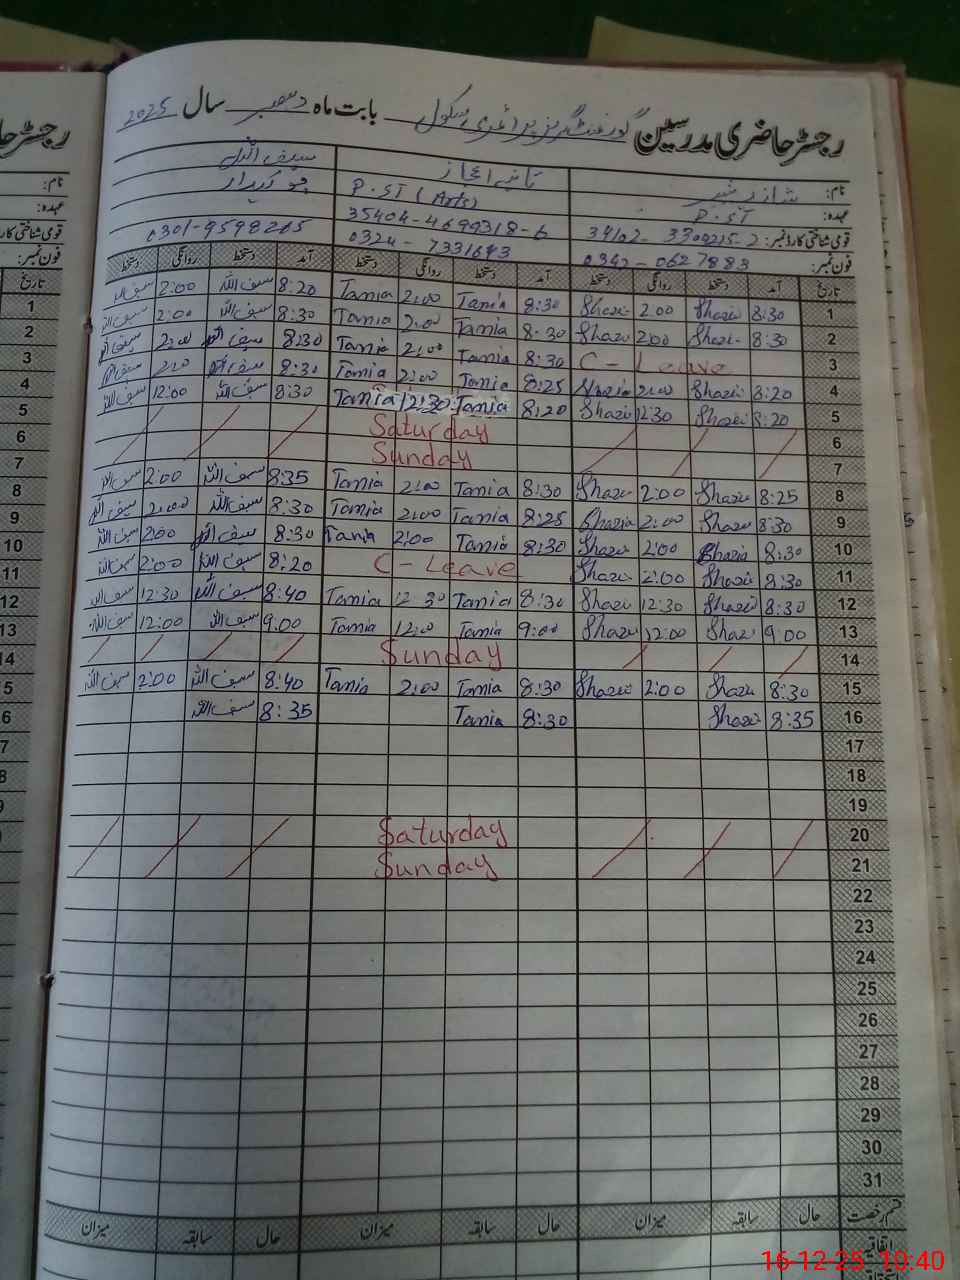 رجسٹر حاضری مدرسین گورنمنٹ گرلز پرائمری سکول بابت ماہ دسمبر سال 2025
نام: شازیہ تانیہ اعجاز سیف اللہ
عہدہ: P.S.T P.S.T (Arts) چوکیدار
قومی شناختی کارڈ نمبر: 34102-3309215-2 35404-4699318-6
فون نمبر: 0342-0627883 0324-7331643 0301-9598265
تاریخ آمد دستخط روانگی دستخط آمد دستخط روانگی دستخط آمد دستخط روانگی دستخط
1 8:30 Shazi 2:00 Shazi 8:30 Tania 2:00 Tania 8:20 سیف اللہ 2:00 سیف اللہ
2 8:30 Shazi 2:00 Shazi 8:30 Tania 2:00 Tania 8:30 سیف اللہ 2:00 سیف اللہ
3 C-Leave 8:30 Tania 2:00 Tania 8:30 سیف اللہ 2:00 سیف اللہ
4 8:20 Shazi 2:00 Shazia 8:25 Tania 2:00 Tania 8:30 سیف اللہ 2:00 سیف اللہ
5 8:20 Shazi 12:30 Shazi 8:20 Tania 12:30 Tania 8:30 سیف اللہ 12:00 سیف اللہ
6 Saturday
7 Sunday
8 8:25 Shazi 2:00 Shazi 8:30 Tania 2:00 Tania 8:35 سیف اللہ 2:00 سیف اللہ
9 8:30 Shazi 2:00 Shazia 8:25 Tania 2:00 Tania 8:30 سیف اللہ 2:00 سیف اللہ
10 8:30 Shazia 2:00 Shazi 8:30 Tania 2:00 Tania 8:30 سیف اللہ 2:00 سیف اللہ
11 8:30 Shazi 2:00 Shazi C-Leave 8:20 سیف اللہ 2:00 سیف اللہ
12 8:30 Shazi 12:30 Shazi 8:30 Tania 12:30 Tania 8:40 سیف اللہ 12:30 سیف اللہ
13 9:00 Shazi 12:00 Shazi 9:00 Tania 12:00 Tania 9:00 سیف اللہ 12:00 سیف اللہ
14 Sunday
15 8:30 Shazi 2:00 Shazi 8:30 Tania 2:00 Tania 8:40 سیف اللہ 2:00 سیف اللہ
16 8:35 Shazi 8:30 Tania 8:35 سیف اللہ
17
18
19
20 Saturday
21 Sunday
22
23
24
25
26
27
28
29
30
31
قسم رخصت حال سابقہ میزان حال سابقہ میزان حال سابقہ میزان
اتفاقیہ
16-12-25 10:40